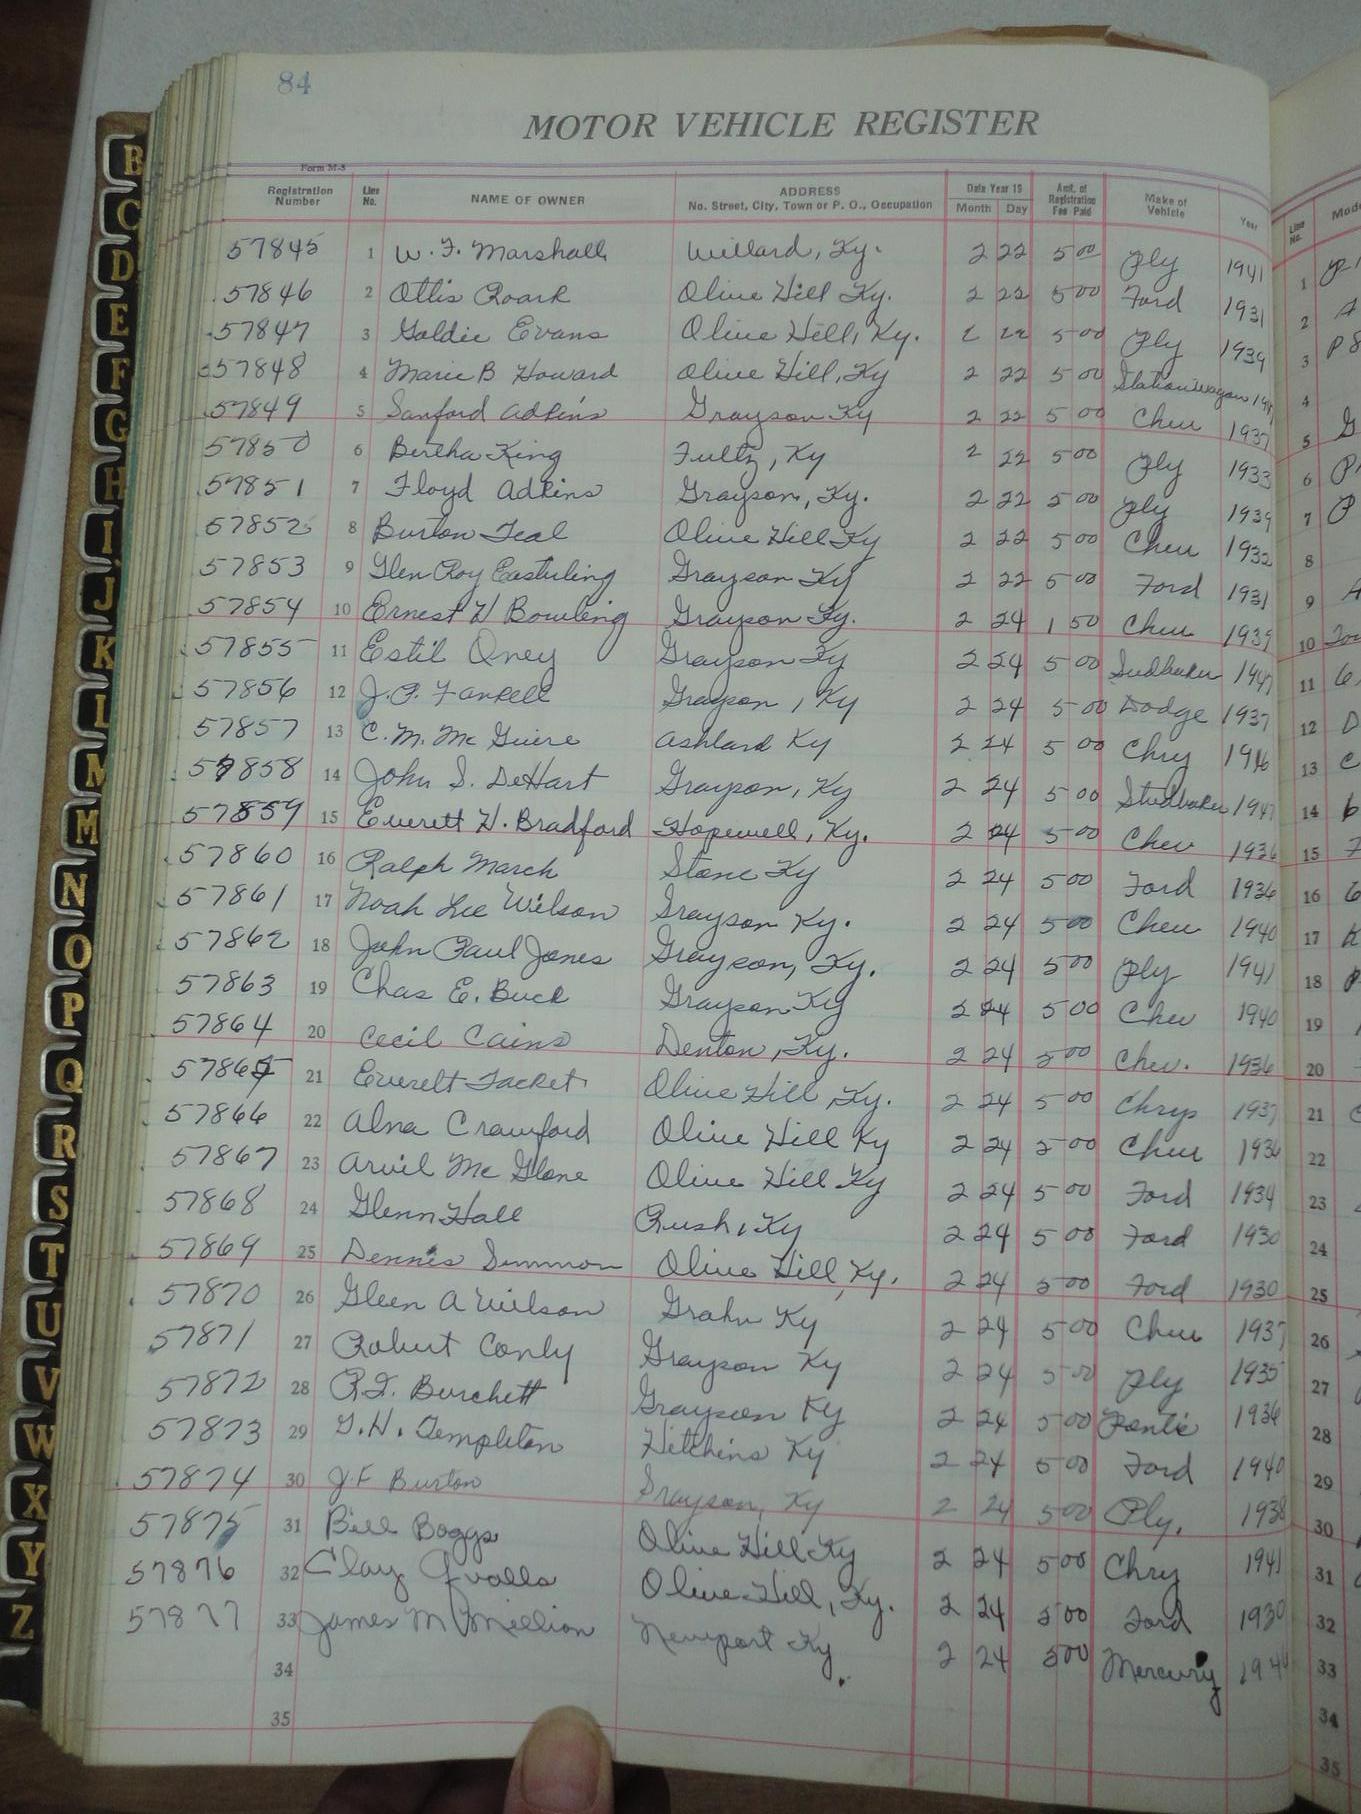 84
MOTOR VEHICLE REGISTER
Form M-8
Registration Number Line No. NAME OF OWNER ADDRESS No. Street, City, Town or P. O., Occupation Date Year 19 Month Day Amt. of Registration Fee Paid Make of Vehicle Year Line No.
57845 1 W. F. Marshall Willard, Ky. 2 22 5 00 Ply 1941 1
57846 2 Ottis Roark Olive Hill Ky. 2 22 5 00 Ford 1931 2 A
57847 3 Goldie Evans Olive Hill, Ky. 2 22 5 00 Ply 1939 3 P8
57848 4 Marie B Howard Olive Hill, Ky 2 22 5 00 Stationwagon 4
57849 5 Sanford Adkins Grayson Ky 2 22 5 00 Chev 1937 5 G
57850 6 Bertha King Fultz, Ky 2 22 5 00 Ply 1933 6 P
57851 7 Floyd Adkins Grayson, Ky. 2 22 5 00 Ply 1939 7 P
57852 8 Burton Teal Olive Hill Ky 2 22 5 00 Chev 1932 8
57853 9 Glen Roy Easterling Grayson Ky 2 22 5 00 Ford 1931 9 A
57854 10 Ernest H Bowling Grayson Ky. 2 24 1 50 Chev 1939 10
57855 11 Estil Oney Grayson Ky 2 24 5 00 Sudbaker 1947 11 6
57856 12 J. P. Fankell Grayson, Ky 2 24 5 00 Dodge 1937 12 D
57857 13 C. M. Mc Guire Ashland Ky 2 24 5 00 Chry 1946 13 C
57858 14 John S. DeHart Grayson, Ky 2 24 5 00 Studbaker 1947 14 6
57859 15 Everett H. Bradford Hopewell, Ky. 2 24 5 00 Chev 1936 15 F
57860 16 Ralph March Stone Ky 2 24 5 00 Ford 1936 16 6
57861 17 Noah Lee Wilson Grayson Ky. 2 24 5 00 Chev 1940 17 K
57862 18 John Paul Jones Grayson, Ky. 2 24 5 00 Ply 1941 18 P
57863 19 Chas E. Buck Grayson Ky 2 24 5 00 Chev 1940 19
57864 20 Cecil Cains Denton, Ky. 2 24 5 00 Chev. 1936 20
57865 21 Everett Tacket Olive Hill, Ky. 2 24 5 00 Chrys 1937 21 C
57866 22 Alna Crawford Olive Hill Ky 2 24 5 00 Chev 1936 22
57867 23 Arvil Mc Glone Olive Hill Ky 2 24 5 00 Ford 1934 23
57868 24 Glenn Hall Rush, Ky 2 24 5 00 Ford 1930 24
57869 25 Dennis Simmon Olive Hill, Ky. 2 24 5 00 Ford 1930 25
57870 26 Gleen A Wilson Grahn Ky 2 24 5 00 Chev 1937 26
57871 27 Robert Conly Grayson Ky 2 24 5 00 Ply 1935 27
57872 28 R. T. Burchett Grayson Ky 2 24 5 00 Pontic 1936 28
57873 29 T. H. Templeton Hitchins Ky 2 24 5 00 Ford 1940 29
57874 30 J. F Burton Grayson, Ky 2 24 5 00 Ply. 1938 30
57875 31 Bill Boggs Olive Hill Ky 2 24 5 00 Chry 1941 31
57876 32 Clay Qualls Olive Hill, Ky. 2 24 5 00 Ford 1930 32
57877 33 James M Million Newport Ky. 2 24 5 00 Mercury 33
34 34
35 35
B
C
D
E
F
G
H
I
J
K
L
M
M
N
O
P
Q
R
S
T
U
V
W
X
Y
Z